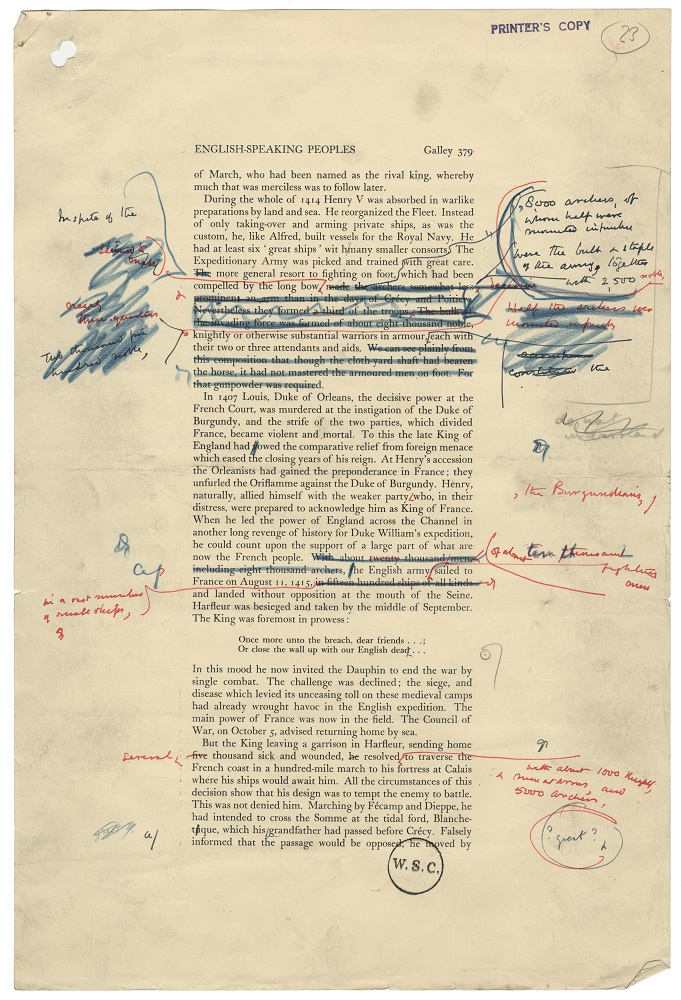 PRINTER'S COPY
23
ENGLISH-SPEAKING PEOPLES Galley 379
of March, who had been named as the rival king, whereby
much that was merciless was to follow later.
During the whole of 1414 Henry V was absorbed in warlike
preparations by land and sea. He reorganized the Fleet. Instead
of only taking-over and arming private ships, as was the
custom, he, like Alfred, built vessels for the Royal Navy. He
had at least six 'great ships' wit hmany smaller consorts. The
Expeditionary Army was picked and trained with great care.
The more general resort to fighting on foot, which had been
compelled by the long bow, made the archers somewhat less
prominent an arm than in the days of Crécy and Poitiers.
Nevertheless they formed a third of the troops. The bulk of
the invading force was formed of about eight thousand noble,
knightly or otherwise substantial warriors in armour, each with
their two or three attendants and aids. We can see plainly from
this composition that though the cloth-yard shaft had beaten
the horse, it had not mastered the armoured men on foot. For
that gunpowder was required.
In 1407 Louis, Duke of Orleans, the decisive power at the
French Court, was murdered at the instigation of the Duke of
Burgundy, and the strife of the two parties, which divided
France, became violent and mortal. To this the late King of
England had owed the comparative relief from foreign menace
which eased the closing years of his reign. At Henry's accession
the Orleanists had gained the preponderance in France; they
unfurled the Oriflamme against the Duke of Burgundy. Henry,
naturally, allied himself with the weaker party who, in their
distress, were prepared to acknowledge him as King of France.
When he led the power of England across the Channel in
another long revenge of history for Duke William's expedition,
he could count upon the support of a large part of what are
now the French people. With about twenty thousand men
including eight thousand archers, the English army sailed to
France on August 11, 1415, in fifteen hundred ships of all kinds
and landed without opposition at the mouth of the Seine.
Harfleur was besieged and taken by the middle of September.
The King was foremost in prowess:
Once more unto the breach, dear friends . . .;
Or close the wall up with our English dead . . .
In this mood he now invited the Dauphin to end the war by
single combat. The challenge was declined; the siege, and
disease which levied its unceasing toll on these medieval camps
had already wrought havoc in the English expedition. The
main power of France was now in the field. The Council of
War, on October 5, advised returning home by sea.
But the King leaving a garrison in Harfleur, sending home
five thousand sick and wounded, he resolved to traverse the
French coast in a hundred-mile march to his fortress at Calais
where his ships would await him. All the circumstances of this
decision show that his design was to tempt the enemy to battle.
This was not denied him. Marching by Fécamp and Dieppe, he
had intended to cross the Somme at the tidal ford, Blanche-
tâque, which his grandfather had passed before Crécy. Falsely
informed that the passage would be opposed, he moved by
W.S.C.
In spite of the
two thousand five
hundred noble,
Cap
in a vast number
of small ships,
several
a/
8000 archers, of
whom half were
mounted infantry
were the bulk & staple
of the army, together
with 2500
noble,
Half the archers were
mounted infantry
the
, the Burgundians,
of about ten thousand
fighting
men
with about 1000 knights
& men at arms, and
5000 archers,
? great ?